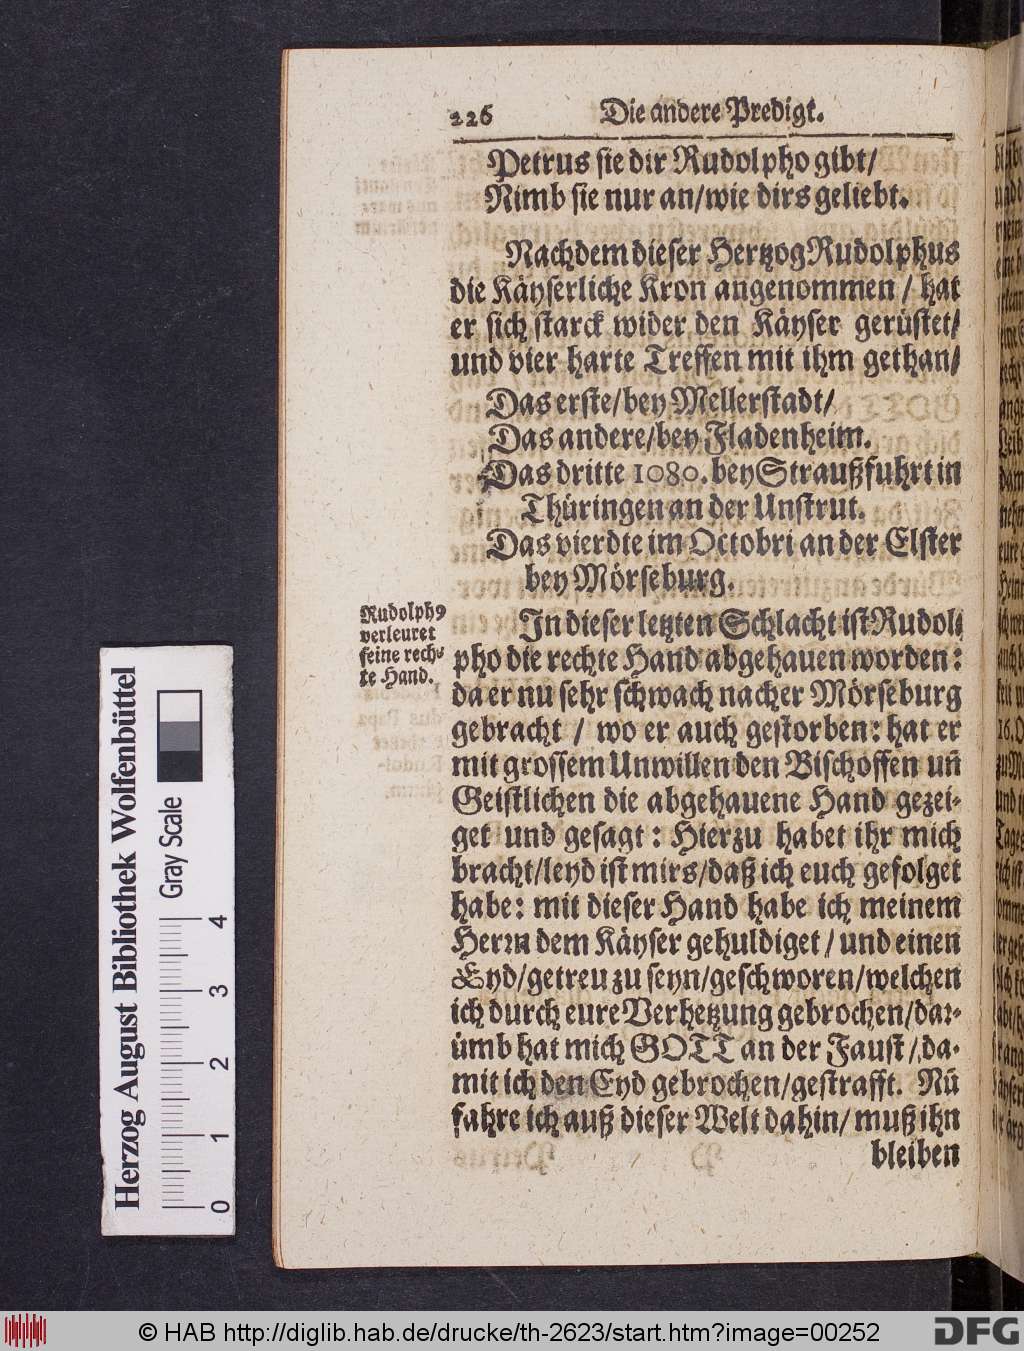 226 Die andere Predigt.
Petrus sie dir Rudolpho gibt/
Nimb sie nur an/wie dirs geliebt.
Nachdem dieser Hertzog Rudolphus
die Käyserliche Kron angenommen / hat
er sich starck wider den Käyser gerüstet/
und vier harte Treffen mit ihm gethan/
Das erste/bey Mellerstadt/
Das andere/bey Fladenheim.
Das dritte 1080. bey Straußfuhrt in
Thüringen an der Unstrut.
Das vierdte im Octobri an der Elster
bey Mörseburg.
Rudolphꝰ
verleuret
seine rech-
te Hand.
In dieser letzten Schlacht ist Rudol-
pho die rechte Hand abgehauen worden:
da er nu sehr schwach nacher Mörseburg
gebracht / wo er auch gestorben: hat er
mit grossem Unwillen den Bischöffen uñ
Geistlichen die abgehauene Hand gezei-
get und gesagt: Hierzu habet ihr mich
bracht/leyd ist mirs/daß ich euch gefolget
habe: mit dieser Hand habe ich meinem
Herrn dem Käyser gehuldiget / und einen
Eyd/getreu zu seyn/geschworen/welchen
ich durch eure Verhetzung gebrochen/dar-
ümb hat mich GOTT an der Faust / da-
mit ich den Eyd gebrochen/gestrafft. Nũ
fahre ich auß dieser Welt dahin/ muß ihn
bleiben
Herzog August Bibliothek Wolfenbüttel
Gray Scale
0 1 2 3 4
© HAB http://diglib.hab.de/drucke/th-2623/start.htm?image=00252
DFG